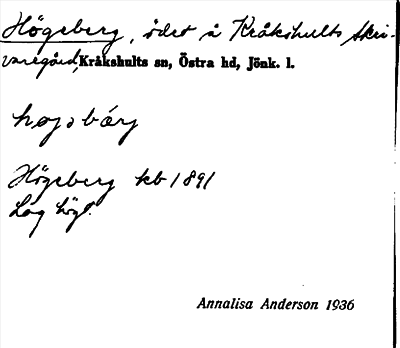 Högeberg, ödet å Kråkshults skri-
varegård, Kråkshults sn, Östra hd, Jönk. l.
Högeberg kb 1891
Låg högl.
Annalisa Anderson 1936